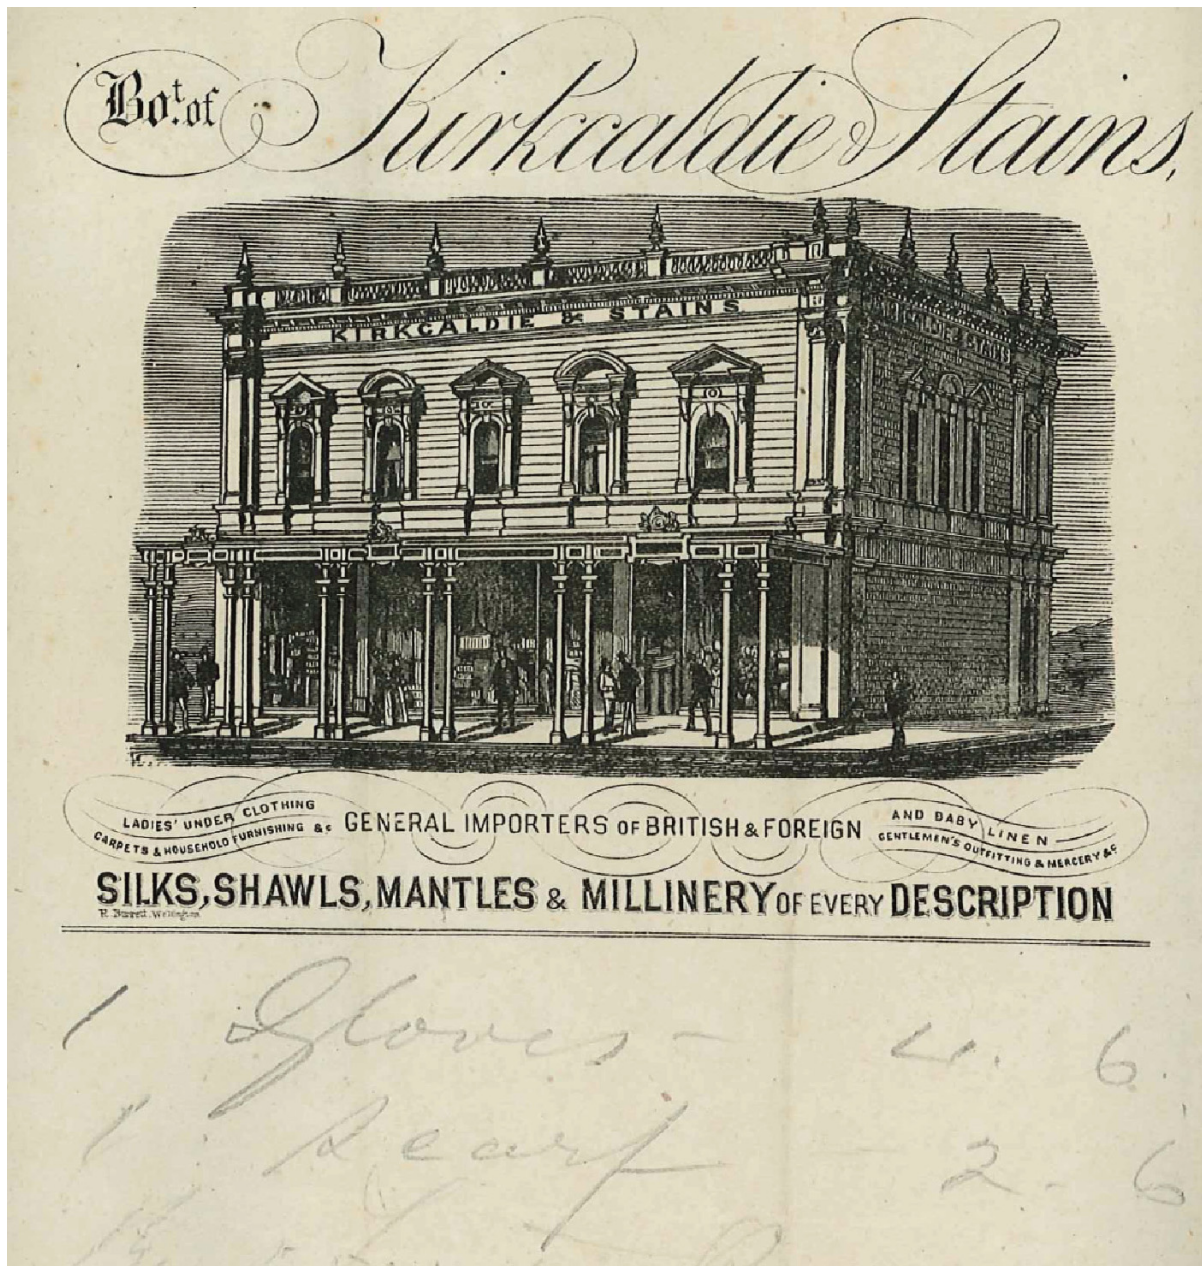 Bot. of Kirkcaldie & Stains,
KIRKCALDIE & STAINS
KIRKCALDIE & STAINS
LADIES' UNDER CLOTHING
CARPETS & HOUSEHOLD FURNISHING &c
GENERAL IMPORTERS OF BRITISH & FOREIGN
AND BABY LINEN
GENTLEMEN'S OUTFITTING & MERCERY &c
SILKS, SHAWLS, MANTLES & MILLINERY OF EVERY DESCRIPTION
R. Burrett. Wellington
1 Gloves - 4. 6.
1. Scarf - 2. 6